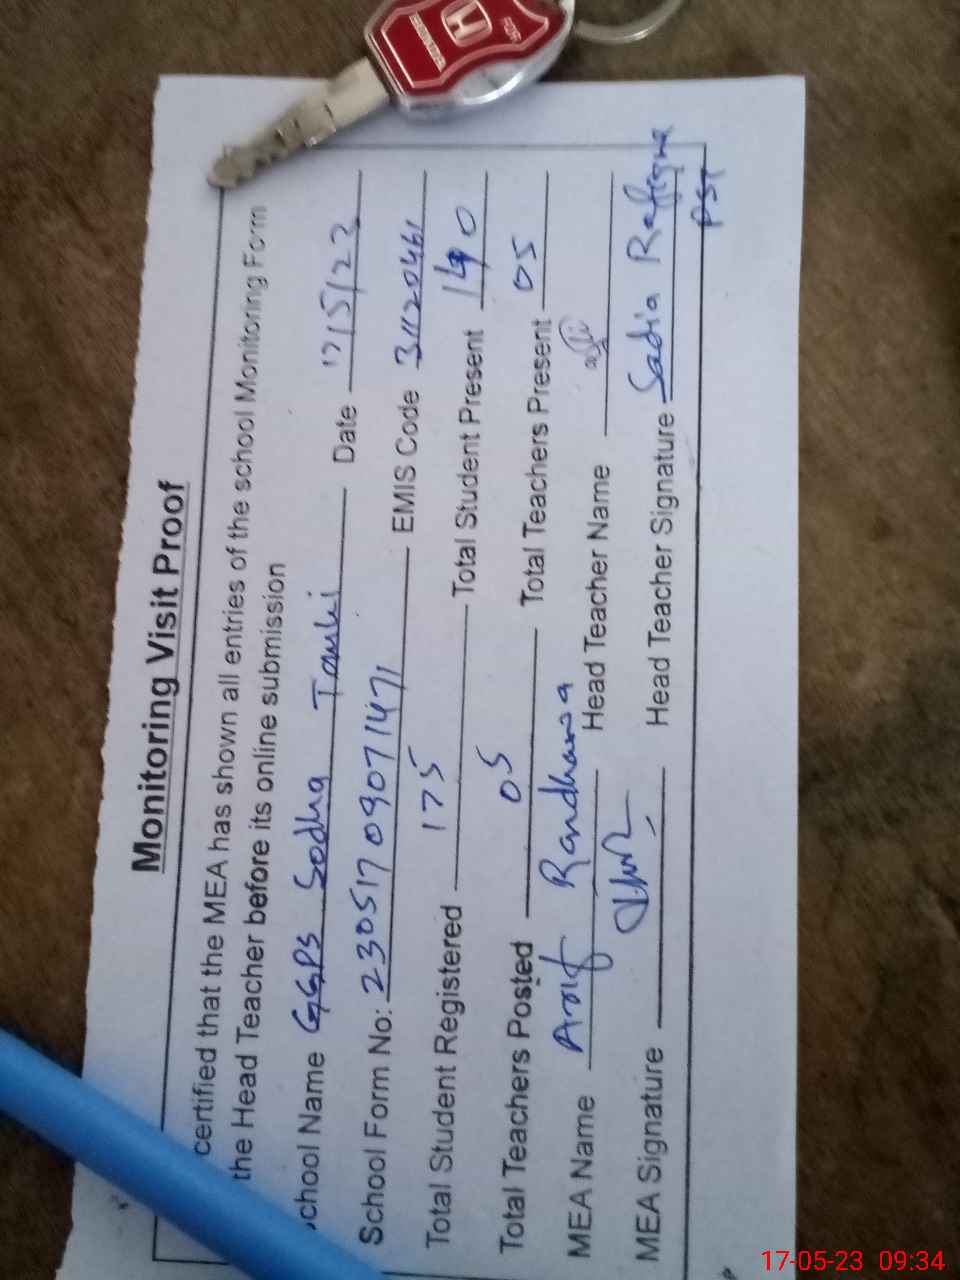 Monitoring Visit Proof
certified that the MEA has shown all entries of the school Monitoring Form
the Head Teacher before its online submission
chool Name GGPS Sodha Date 17/5/23
School Form No: 230517090071471 EMIS Code 31120461
Total Student Registered 175 Total Student Present 140
Total Teachers Posted 05 Total Teachers Present 05
MEA Name Arif Randhawa Head Teacher Name
MEA Signature Head Teacher Signature Sadia Rafique
PST
HONDA
17-05-23 09:34